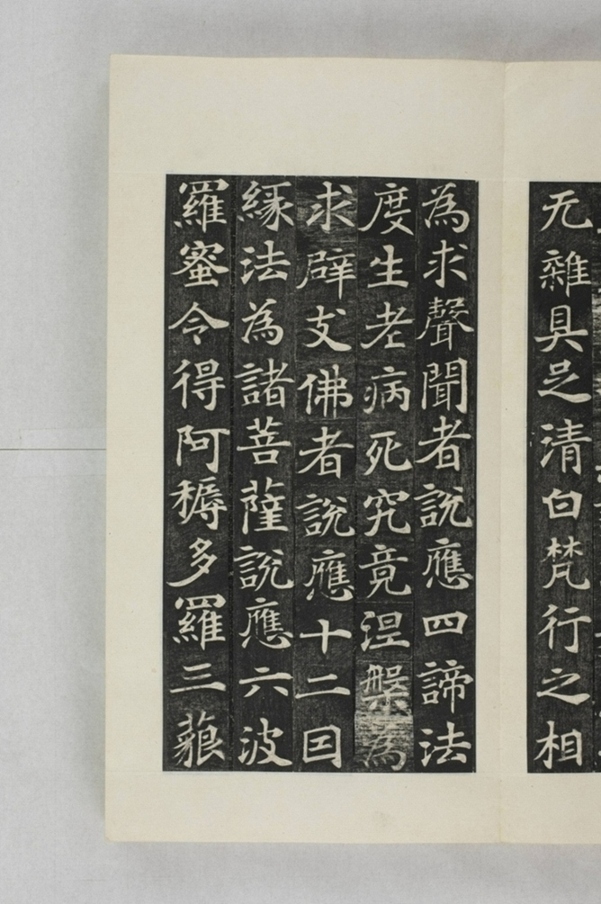 无雜具足清白梵行之相
為求聲聞者說應四諦法
度生老病死究竟涅槃為
求辟支佛者說應十二因
緣法為諸菩薩說應六波
羅蜜令得阿耨多羅三藐